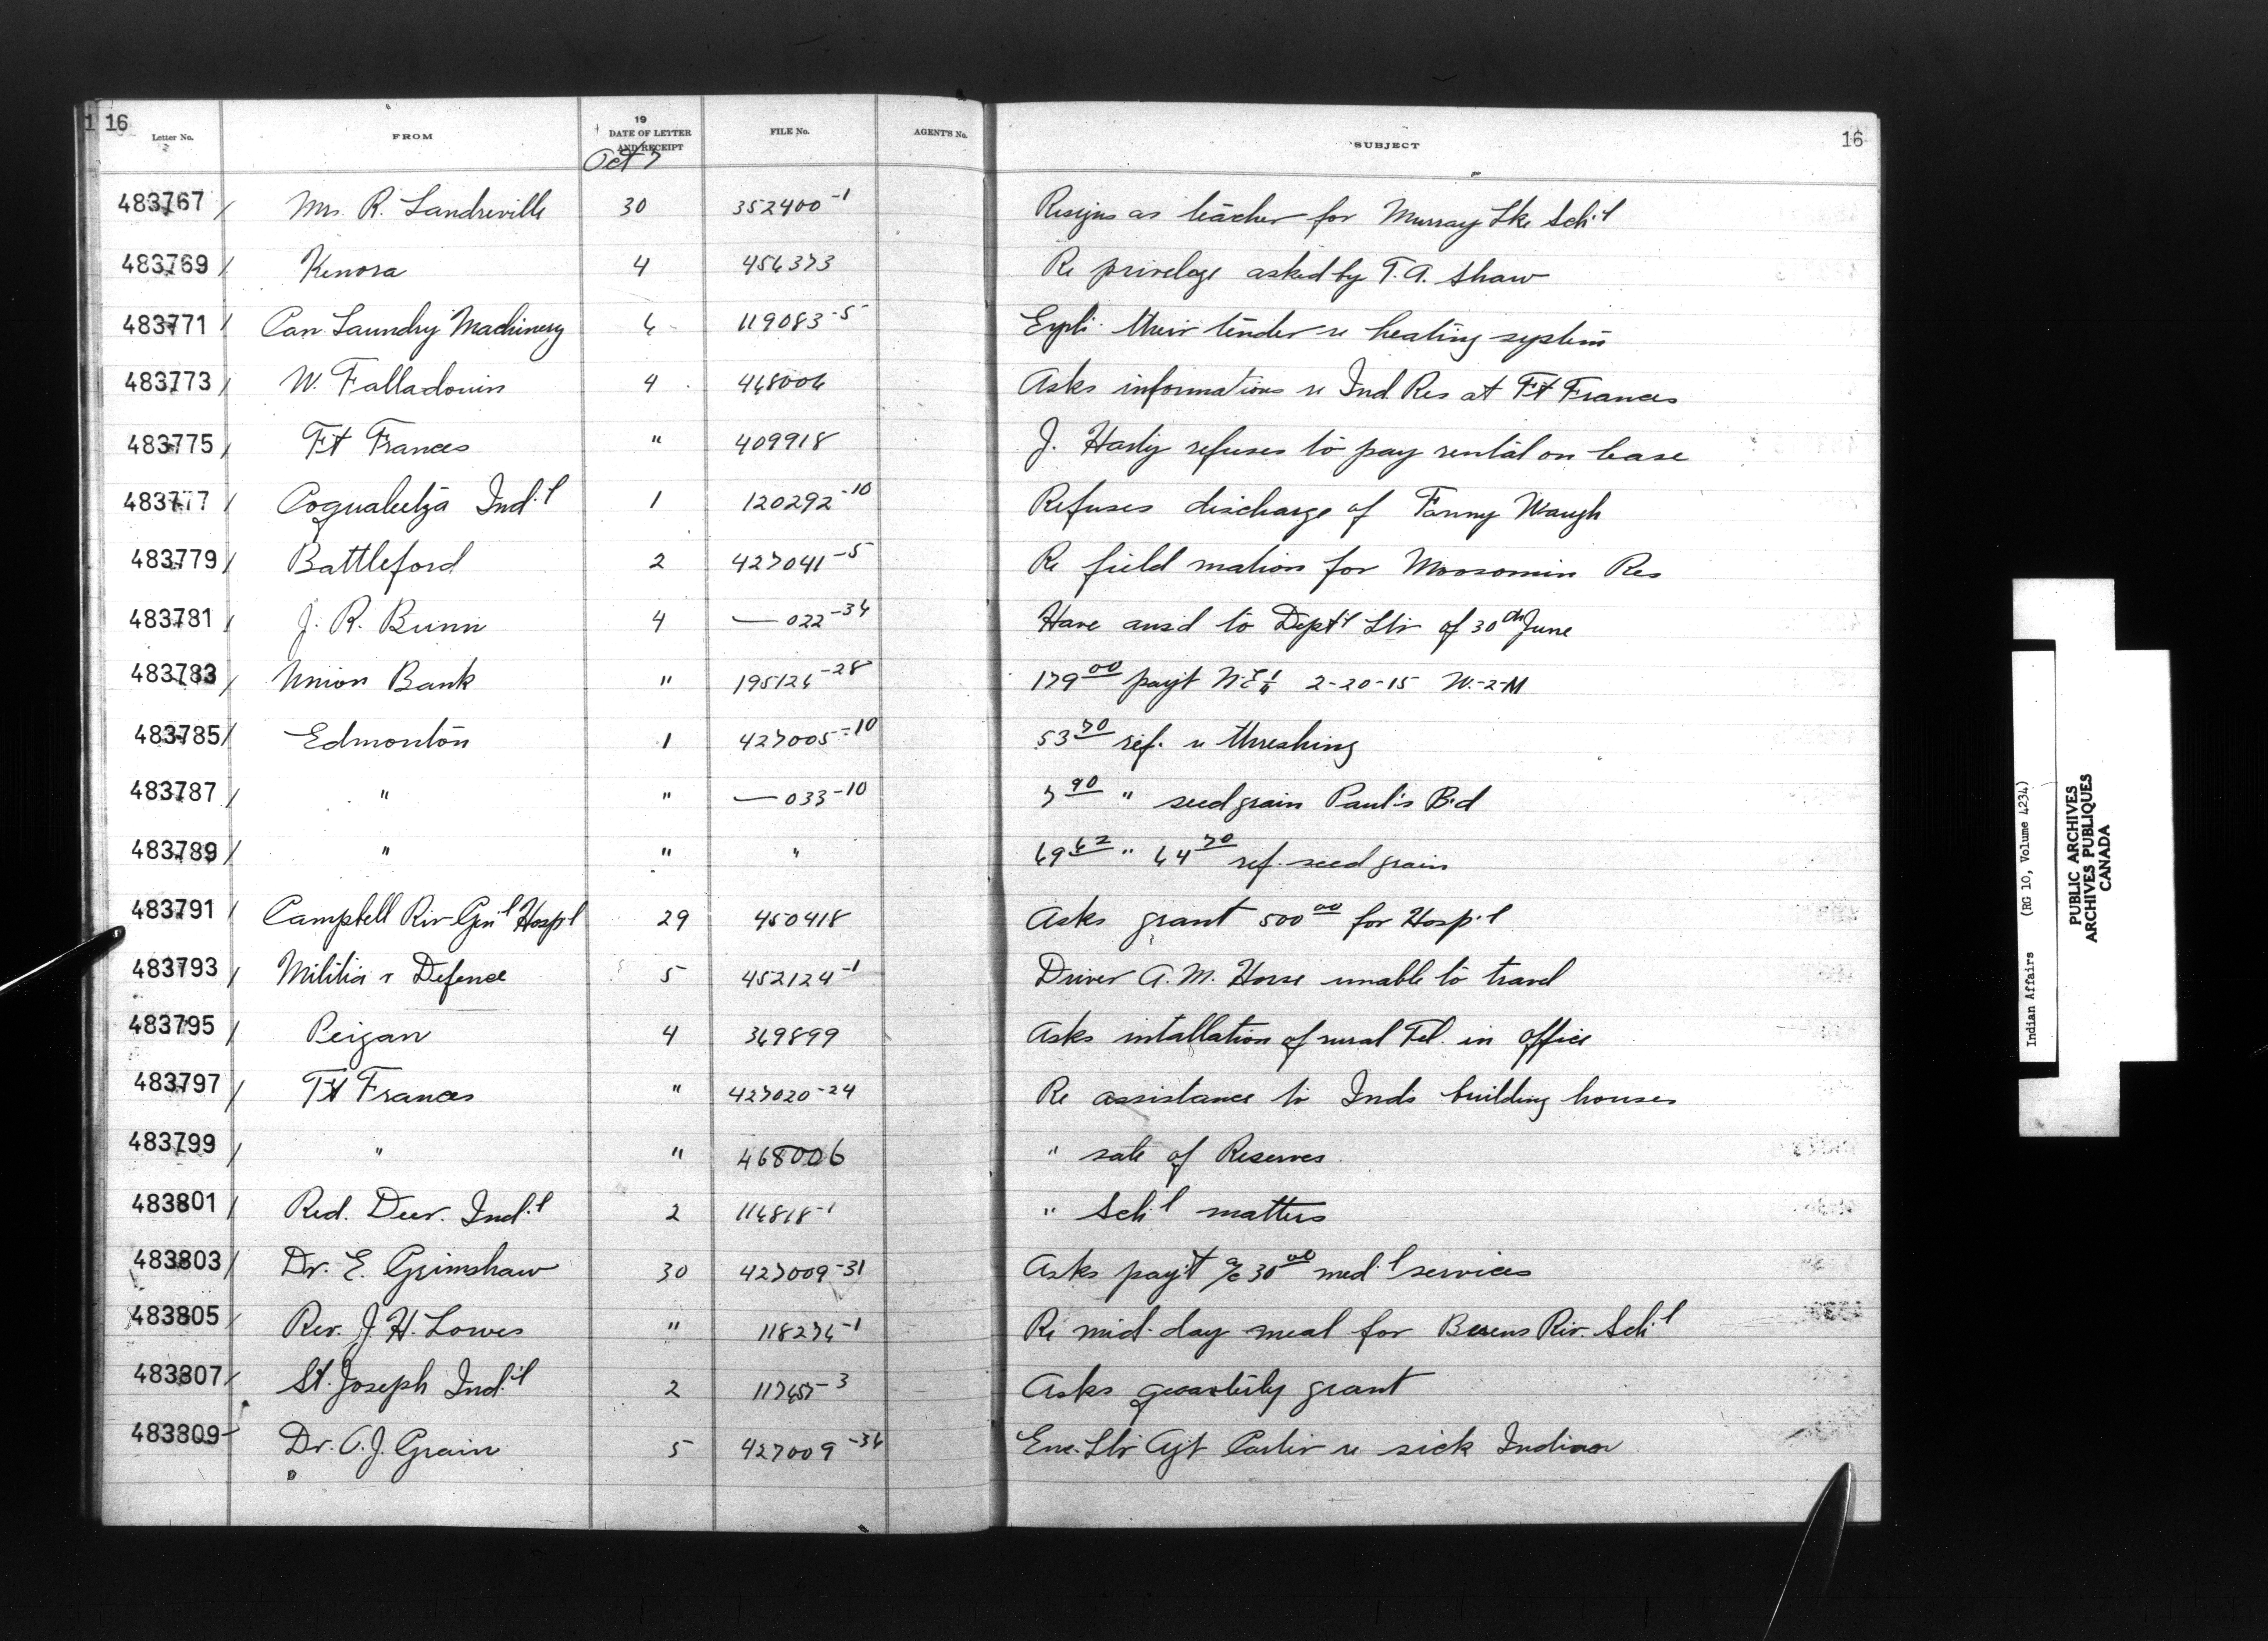 1 16
Letter No. FROM 19 DATE OF LETTER AND RECEIPT FILE No. AGENT'S No. SUBJECT 16
Oct 7
483767 / Mrs. R. Landreville 30 352400-1 Resigns as teacher for Murray Lke Sch'l
483769 / Kenora 4 456373 Re privelege asked by T.A. Shaw
483771 / Can Laundry Machinery 6 119083-5 Expl. their tender re heating system
483773 / W. Falladown 4 468006 Asks information re Ind. Res at Ft Frances
483775 / Ft Frances " 409918 J. refuses to pay rental on lease
483777 / Coqualeetza Ind'l 1 120292-10 Refuses discharge of Fanny Waugh
483779 / Battleford 2 427041-5 Re field matron for Moosomin Res
483781 / J. R. Bunn 4 — 022-36 Have ans'd to Dept'l Ltr of 30th June
483783 / Union Bank " 195126-28 179 00 pay't N.E 1/4 2-20-15 W.-2-M
483785 / Edmonton 1 427005-10 53 70 ref. re threshing
483787 / " " — 033-10 7 90 " seed grain Paul's B'd
483789 / " " " 69 62 " 64 70 ref. seed grain
483791 / Campbell Riv Gen'l Hosp'l 29 450418 Asks grant 500 00 for Hosp'l
483793 / Militia & Defence 5 452124-1 Driver A.M. Horse unable to travel
483795 / Peigan 4 369899 Asks intallation of rural Tel. in office
483797 / Ft Frances " 427020-24 Re assistance to Inds building houses
483799 / " " 468006 " sale of Reserves
483801 / Red. Deer. Ind'l 2 116818-1 " Sch'l matters
483803 / Dr. E. Grimshaw 30 427009-31 Asks pay't a/c 30 00 med'l services
483805 / Rev. J. H. Lowes " 118276-1 Re mid-day meal for Berens Riv. Sch'l
483807 / St. Joseph Ind'l 2 117657-3 Asks quarterly grant
483809 Dr. O.J. Grain 5 427009-36 Enc. Ltr Agt Carter re sick Indian
Indian Affairs (RG 10, Volume 4234)
PUBLIC ARCHIVES
ARCHIVES PUBLIQUES
CANADA